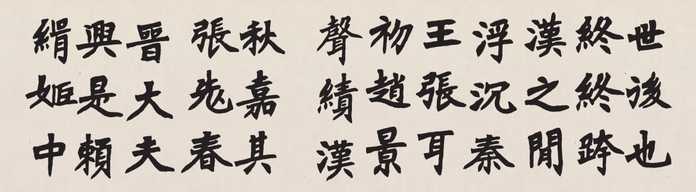 緝姬中
興是賴
晉大夫
張老春
秋嘉其
聲績漢
初趙景
王張耳
浮沉秦
漢之閒
終終跨
世後也